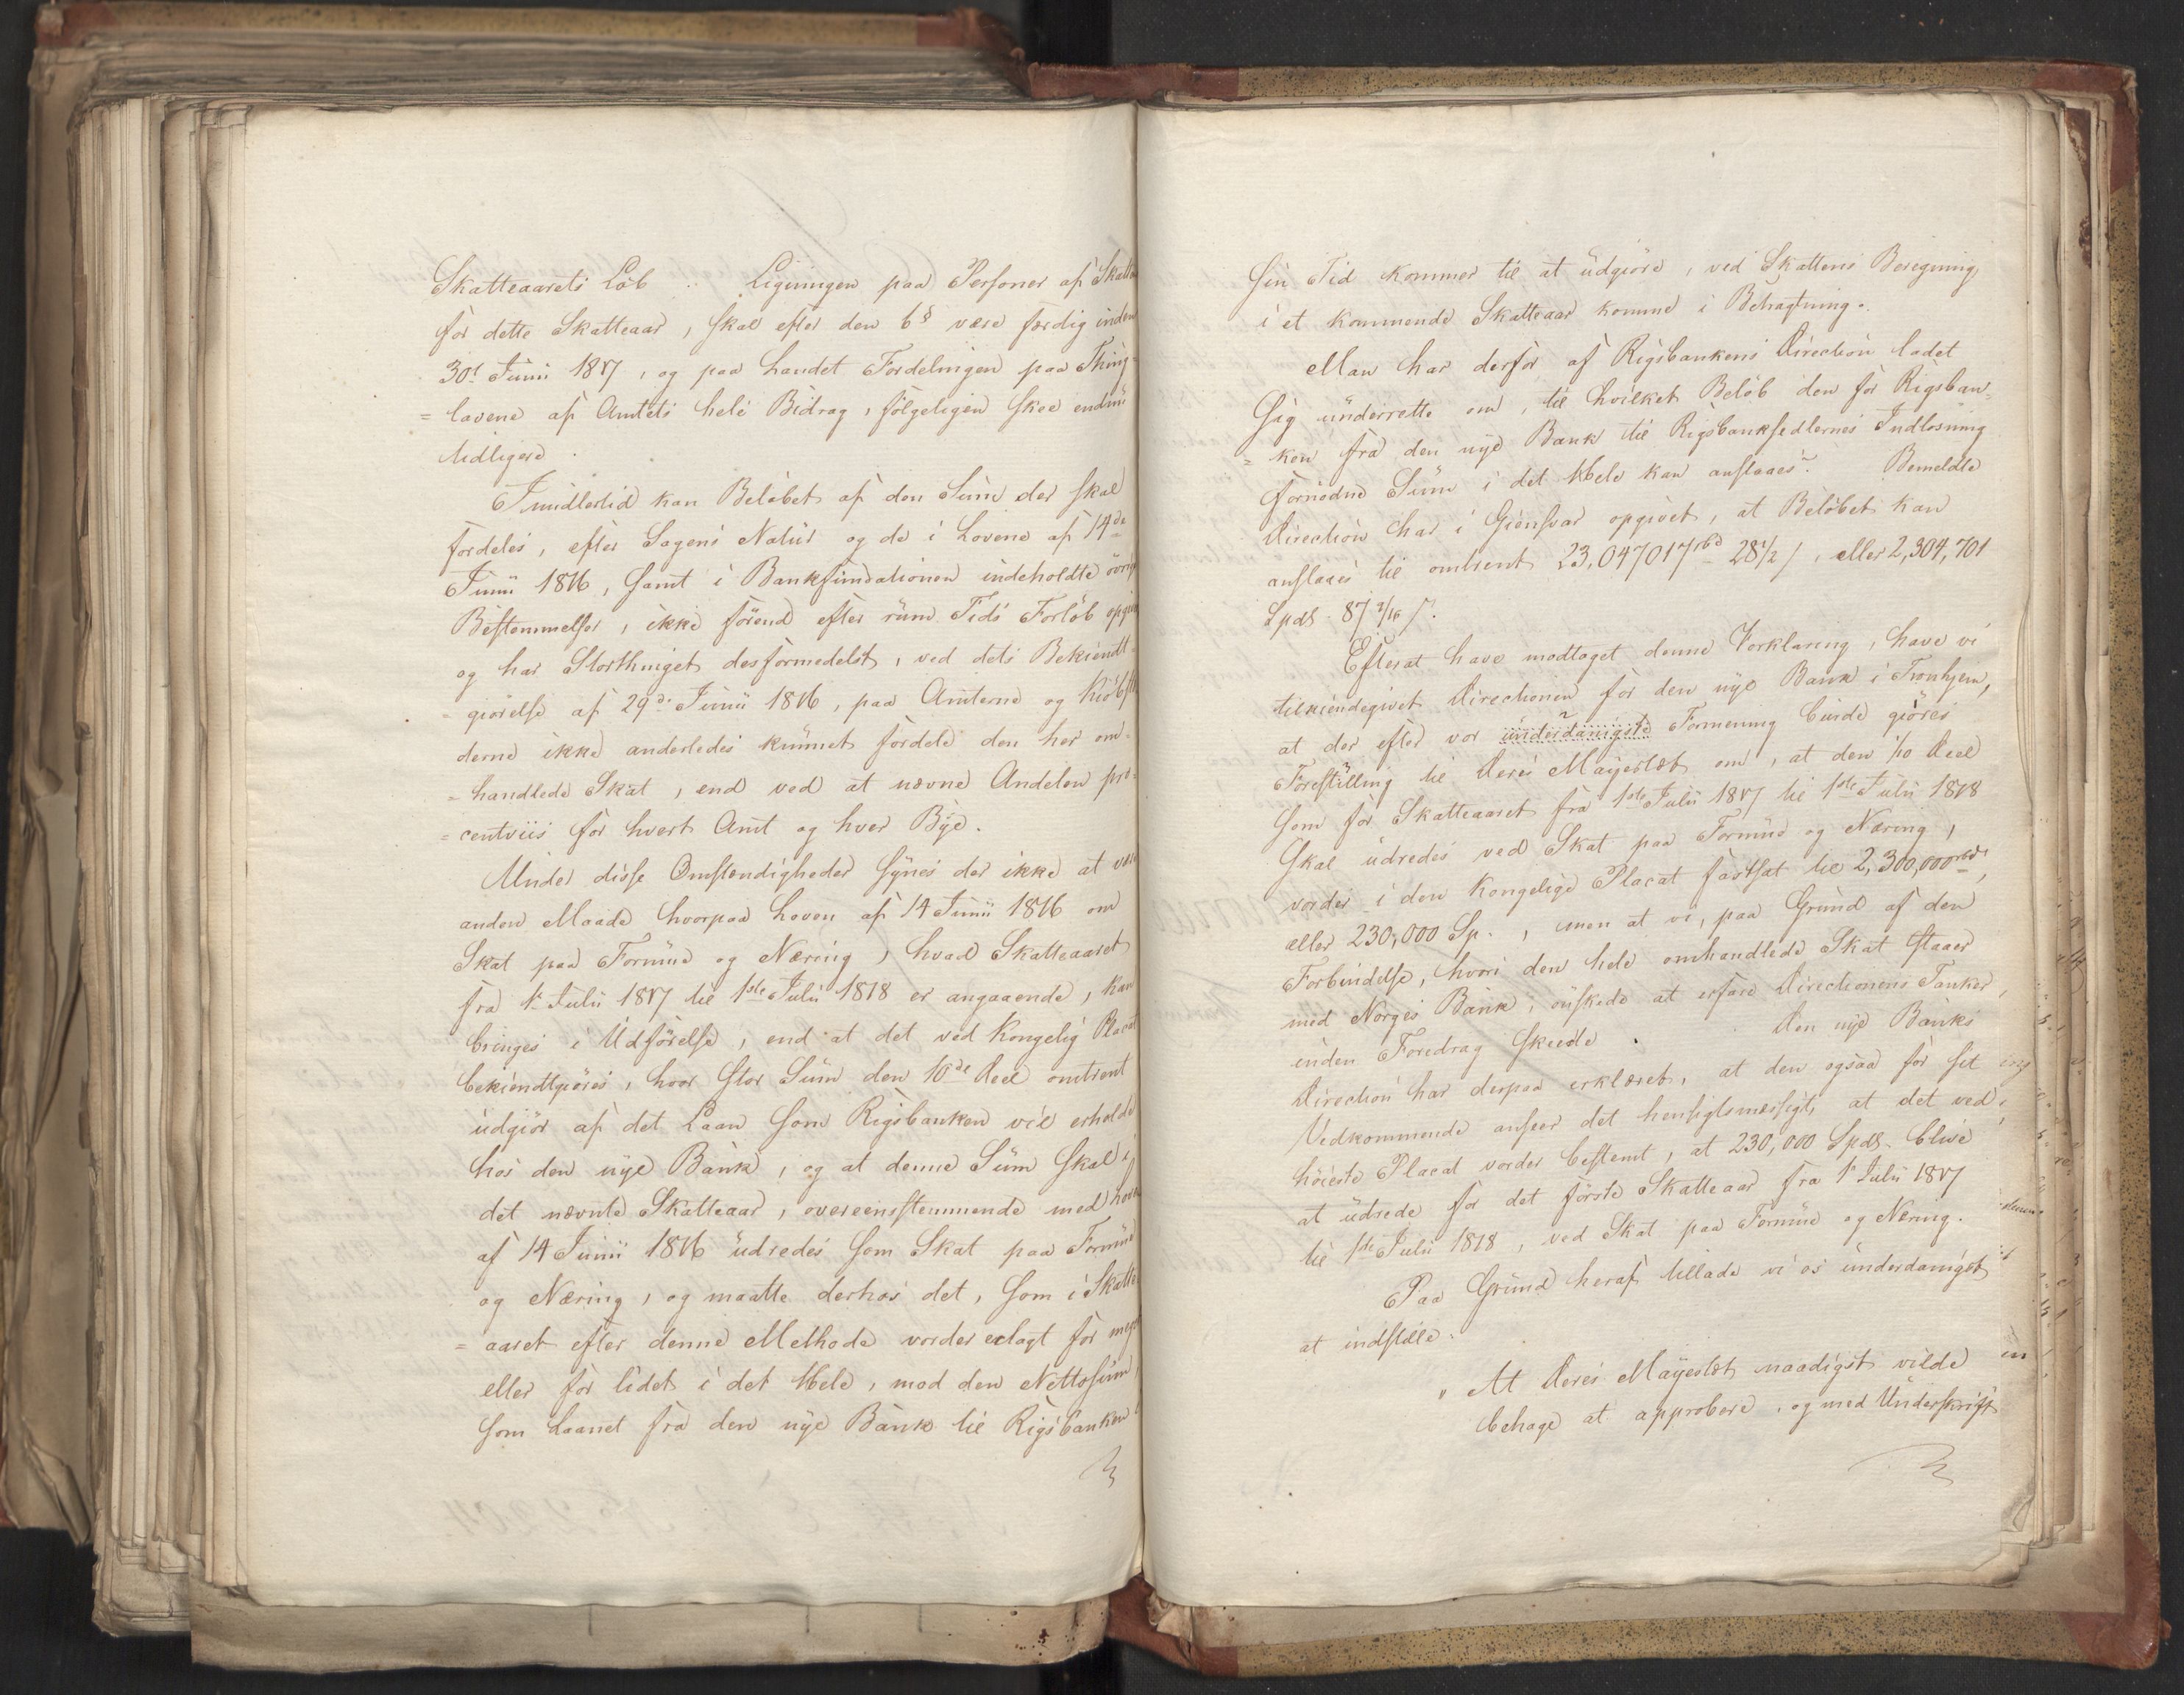 Skatteaarets Løb .. Ligningen paa Personer af Skatten
for dette Skatteaar, skal efter den 6§ være færdig inden
30te Junii 1817, og paa Landet Fordelingen paa Thing-
= lavene af Amtets hele Bidrag, følgeligen skee endnu
tidligere.
Imidlertid kan Beløbet af den Sum der skal
fordeles, efter Sagens Natur og de i Lovene af 14de
Junii 1816, samt i Bankfundationen indeholdte øvrige
Bestemmelser, ikke førend efter rum Tids Forløb opgives
og har Storthinget desformedelst, ved dets Bekiendt-
= giørelse af 29de Junii 1816, paa Amterne og Kiøbstæ
derne ikke anderledes kunnet fordele den her om-
= handlede Skat, end ved at nævne Andelen pro-
= centviis for hvert Amt og hver Bye.
Under disse Omstændigheder synes der ikke at være
anden Maade hvorpaa Loven af 14 Junii 1816 om
Skat paa Formue og Næring, hvad Skatteaaret
fra 1e Julii 1817 til 1ste Julii 1818 er angaaende, kan
bringes i Udførelse, end at det ved Kongelig Placat
bekiendtgiøres, hvor stor Sum den 10de Deel omtrent
udgiør af det Laan som Rigsbanken vil erholde
hos den nye Bank, og at denne Sum skal i
det nævnte Skatteaar, overeensstemmende med Loven
af 14 Junii 1816 udredes som Skat paa Formue
og Næring, og maatte derhos det, som i Skatte
= aaret efter denne Methode vorder erlagt for meget
eller for lidet i det Hele, mod den Nettosum,
som Laanet fra den nye Bank til Rigsbanken
sin Tid kommer til at udgiøre, ved Skattens Beregning
i et kommende Skatteaar komme i Betragtning.
Man har derfor af Rigsbankens Direction ladet
sig underrette om, til hvilket Beløb den for Rigsban-
= ken fra den nye Bank til Rigsbanksedlernes Indløsning
fornødne Sum i det Hele kan anslaaes. Bemeldte
Direction har i Giensvar opgivet, at Beløbet kan
anslaaes til omtrent 23,047017 rbd 28½ /, eller 2,304,701
Spds. 87 /.
Efterat have modtaget denne Forklaring, have vi
tilkiendegivet Directionen for den nye Bank i Tronhjem,
at der efter vor underdanigste Formening burde giøres
Forestilling til Deres Mayestæt om, at den 1/10 Deel
som for Skatteaaret fra 1ste Julii 1817 til 1ste Julii 1818
skal udredes ved Skat paa Formue og Næring,
vorder i den Kongelige Placat fastsat til 2,300,000 rbd,
eller 230,000 Sp., men at vi, paa Grund af den
Forbindelse, hvori den hele omhandlede Skat staaer
med Norges Bank, ønskede at erfare Directionens Tanker,
inden Foredrag skeede. Den nye Banks
Direction har derpaa erklæret, at den ogsaa for sit
Vedkommende anseer det hensigtsmæssigt, at det ved
høieste Placat vorder bestemt, at 230,000 Spds. blive
at udrede for det første Skatteaar fra 1e Julii 1817
til 1ste Julii 1818, ved Skat paa Formue og Næring.
Paa Grund heraf tillade vi os underdanigst
at indstille.
" At Deres Mayestæt naadigst vilde
behage at approbere, og med Underskrift